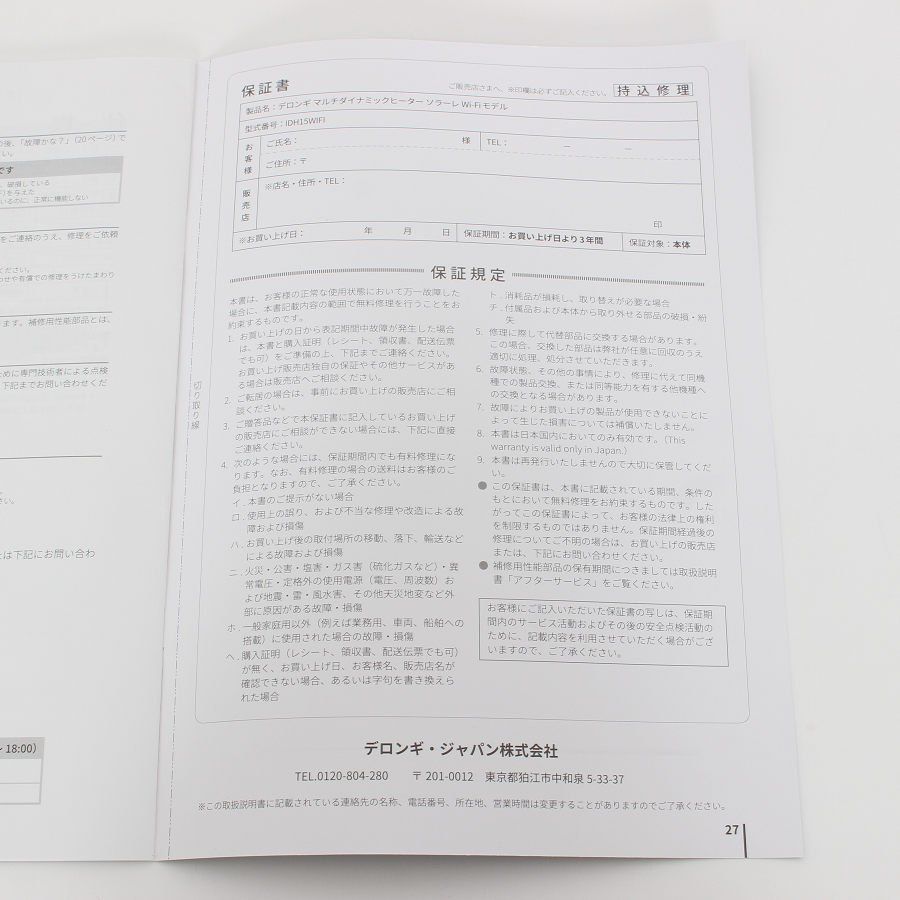 の後、「故障かな？」（20ページ）で
さい。
です
、破損している
を与えた
いるのに、正常に機能しない
をご連絡のうえ、修理をご依頼
ください。
わせや有償での修理をうけたまわり
ます。補修用性能部品とは、
ために専門技術者による点検
、下記までお問い合わせくだ
さい。
たは下記にお問い合わ
18:00）
切り取り線
保証書
ご販売店さまへ、※印欄は必ずご記入ください。
持込修理
製品名：デロンギ マルチダイナミックヒーター ソラーレ Wi-Fi モデル
型式番号：IDH15WIFI
お客様
ご氏名：　様　TEL：　－　－
ご住所：〒
販売店
※店名・住所・TEL：
印
※お買い上げ日：　年　月　日
保証期間：お買い上げ日より3年間
保証対象：本体
保証規定
本書は、お客様の正常な使用状態において万一故障した
場合に、本書記載内容の範囲で無料修理を行うことをお
約束するものです。
1. お買い上げの日から表記期間中故障が発生した場合
は、本書と購入証明（レシート、領収書、配送伝票
でも可）をご準備の上、下記までご連絡ください。
お買い上げ販売店独自の保証やその他サービスがあ
る場合は販売店へご相談ください。
2. ご転居の場合は、事前にお買い上げの販売店にご相
談ください。
3. ご贈答品などで本保証書に記入しているお買い上げ
の販売店にご相談ができない場合には、下記に直接
ご連絡ください。
4. 次のような場合には、保証期間内でも有料修理にな
ります。なお、有料修理の場合の送料はお客様のご
負担となりますので、ご了承ください。
イ. 本書のご提示がない場合
ロ. 使用上の誤り、および不当な修理や改造による故
障および損傷
ハ. お買い上げ後の取付場所の移動、落下、輸送など
による故障および損傷
ニ. 火災・公害・塩害・ガス害（硫化ガスなど）・異
常電圧・定格外の使用電源（電圧、周波数）お
よび地震・雷・風水害、その他天災地変など外
部に原因がある故障・損傷
ホ. 一般家庭用以外（例えば業務用、車両、船舶への
搭載）に使用された場合の故障・損傷
ヘ. 購入証明（レシート、領収書、配送伝票でも可）
が無く、お買い上げ日、お客様名、販売店名が
確認できない場合、あるいは字句を書き換えら
れた場合
ト. 消耗品が損耗し、取り替えが必要な場合
チ. 付属品および本体から取り外せる部品の破損・紛
失
5. 修理に際して代替部品に交換する場合があります。
この場合、交換した部品は弊社が任意に回収のうえ
適切に処理、処分させていただきます。
6. 故障状態、その他の事情により、修理に代えて同機
種での製品交換、または同等能力を有する他機種へ
の交換となる場合があります。
7. 故障によりお買い上げの製品が使用できないことに
よって生じた損害については補償いたしません。
8. 本書は日本国内においてのみ有効です。（This
warranty is valid only in Japan.）
9. 本書は再発行いたしませんので大切に保管してくだ
い。
● この保証書は、本書に記載されている期間、条件の
もとにおいて無料修理をお約束するものです。した
がってこの保証書によって、お客様の法律上の権利
を制限するものではありません。保証期間経過後の
修理についてご不明の場合は、お買い上げの販売店
または、下記にお問い合わせください。
● 補修用性能部品の保有期間につきましては取扱説明
書「アフターサービス」をご覧ください。
お客様にご記入いただいた保証書の写しは、保証期
間内のサービス活動およびその後の安全点検活動の
ために、記載内容を利用させていただく場合がござ
いますので、ご了承ください。
デロンギ・ジャパン株式会社
TEL.0120-804-280　〒201-0012　東京都狛江市中和泉 5-33-37
※この取扱説明書に記載されている連絡先の名称、電話番号、所在地、営業時間は変更することがありますのでご了承ください。
27